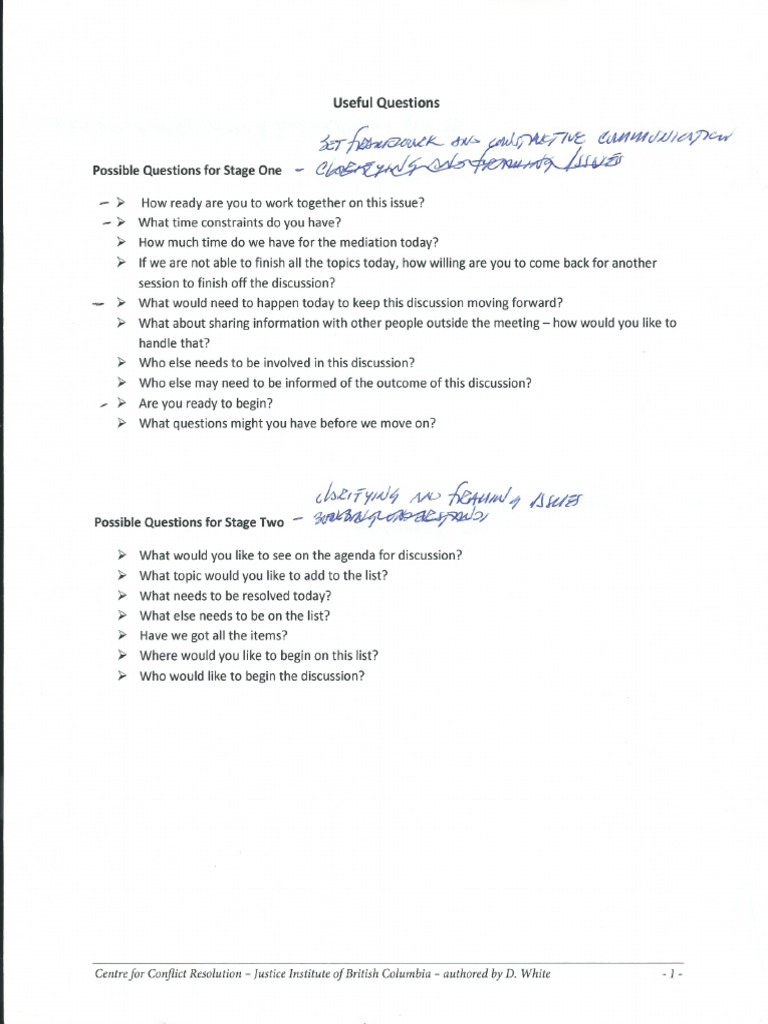 Useful Questions
SET FRAMEWORK AND CONSTRUCTIVE COMMUNICATION
Possible Questions for Stage One – CLARIFYING AND FRAMING ISSUES
– ➢ How ready are you to work together on this issue?
– ➢ What time constraints do you have?
➢ How much time do we have for the mediation today?
➢ If we are not able to finish all the topics today, how willing are you to come back for another
session to finish off the discussion?
– ➢ What would need to happen today to keep this discussion moving forward?
➢ What about sharing information with other people outside the meeting – how would you like to
handle that?
➢ Who else needs to be involved in this discussion?
➢ Who else may need to be informed of the outcome of this discussion?
– ➢ Are you ready to begin?
➢ What questions might you have before we move on?
CLARITYING AND FRAMING ISSUES
Possible Questions for Stage Two –
➢ What would you like to see on the agenda for discussion?
➢ What topic would you like to add to the list?
➢ What needs to be resolved today?
➢ What else needs to be on the list?
➢ Have we got all the items?
➢ Where would you like to begin on this list?
➢ Who would like to begin the discussion?
Centre for Conflict Resolution – Justice Institute of British Columbia – authored by D. White - 1 -